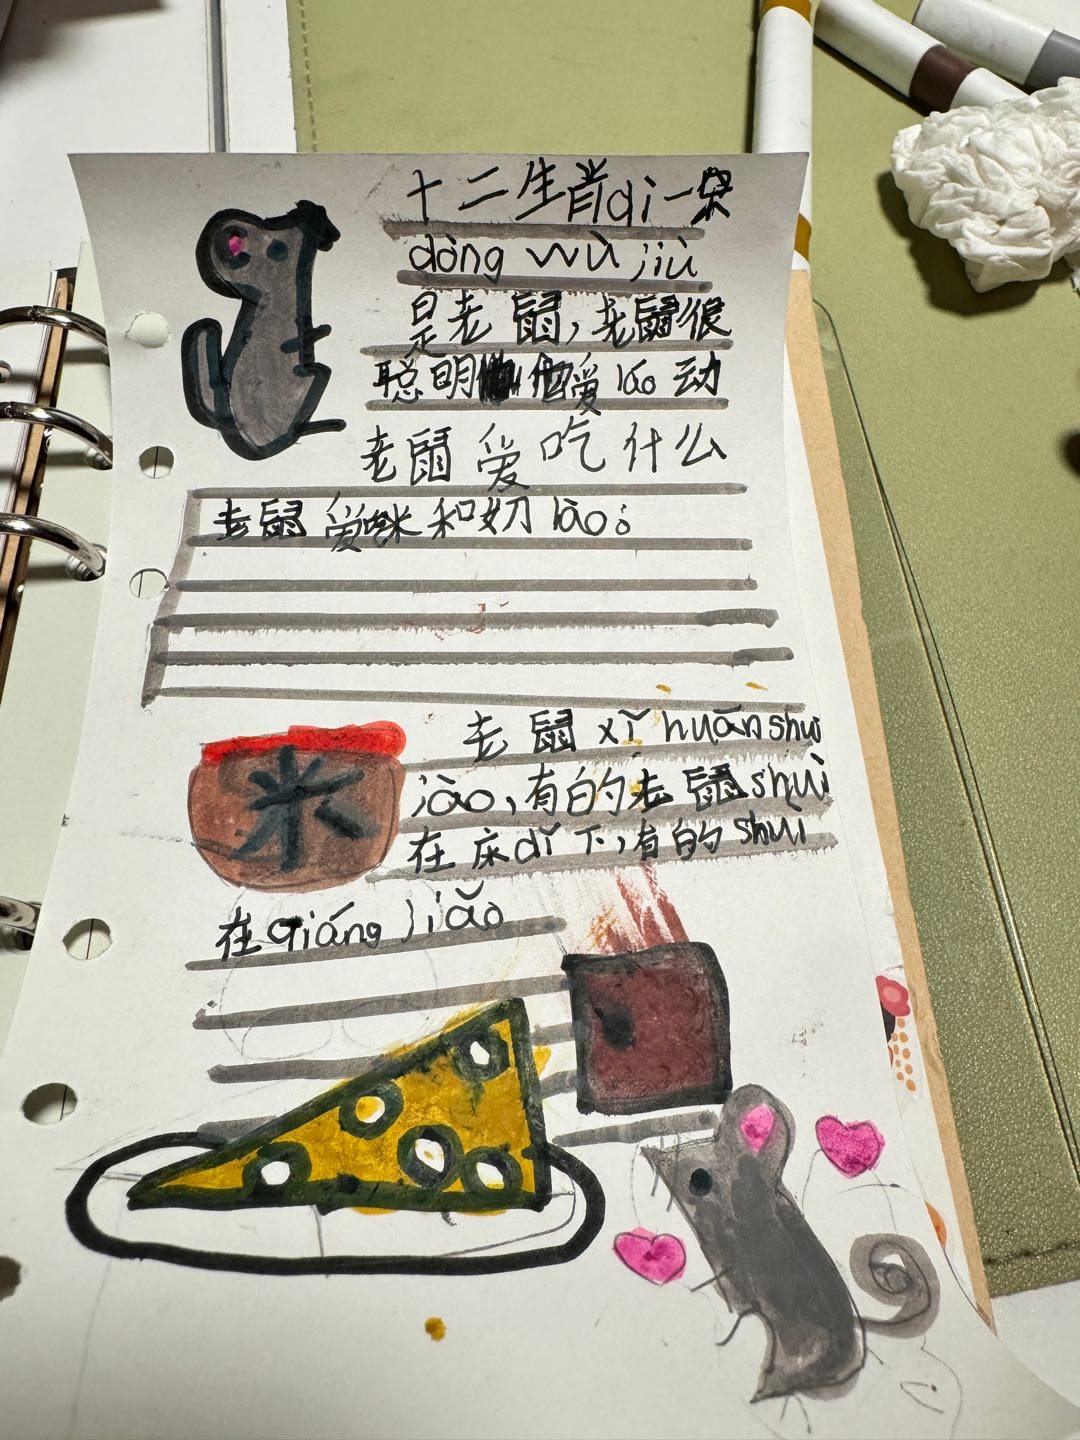 十二生肖qi一只
dòng wù jiù
是老鼠,老鼠很
聪明 他爱láo动
老鼠爱吃什么
老鼠爱吃米和奶lào。
米
老鼠xǐ huān shuì
jiào,有的老鼠shuì
在床dǐ下,有的shuì
在qiáng jiǎo